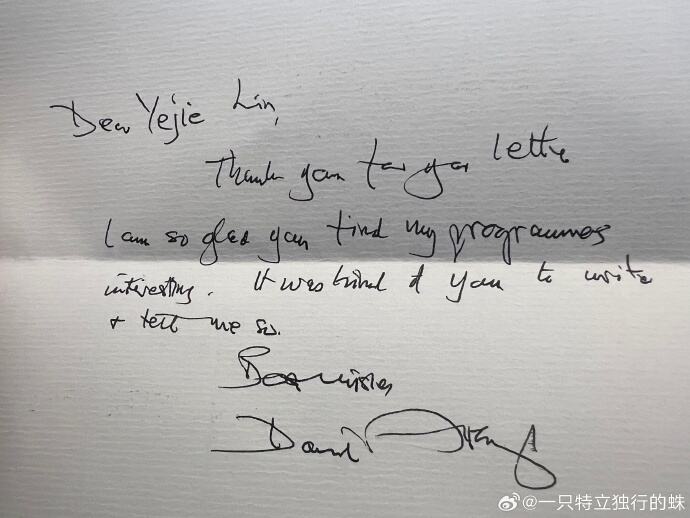 Dear Yejie Lin,
Thank you for your letter
I am so glad you find my programmes
interesting. It was kind of you to write
& tell me so.
Best wishes
David
@一只特立独行的蛛